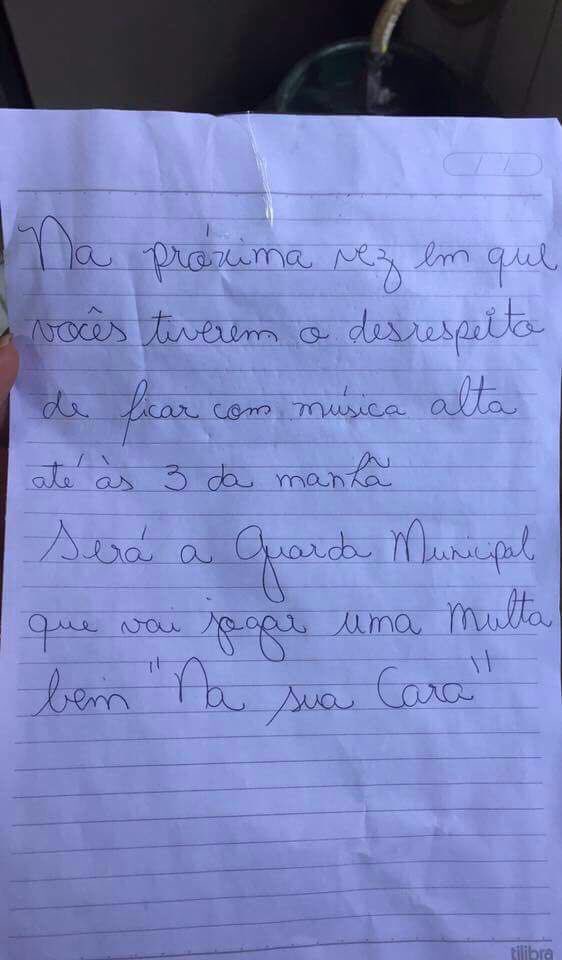 Na próxima vez em que
vocês tiverem o desrespeito
de ficar com música alta
até às 3 da manhã
Será a Guarda Municipal
que vai jogar uma multa
bem "Na sua Cara"
tilibra